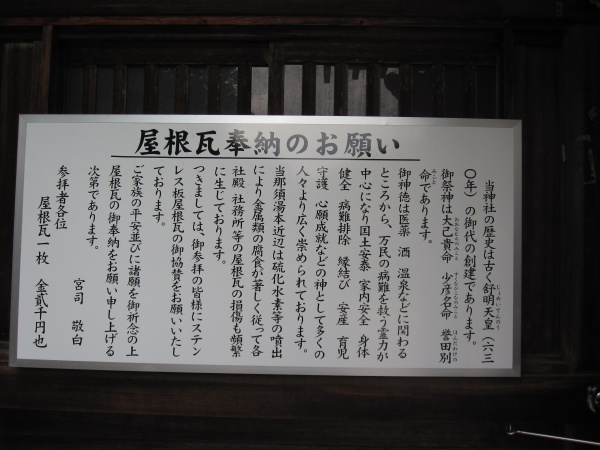 屋根瓦奉納のお願い
当神社の歴史は古く舒明天皇(六三
〇年)の御代の創建であります。
御祭神は大己貴命 少彦名命 誉田別
命であります。
御神徳は医薬 酒 温泉などに関わる
ところから、万民の病難を救う霊力が
中心になり国土安泰 家内安全 身体
健全 病難排除 縁結び 安産 育児
守護 心願成就などの神として多くの
人々より広く崇められております。
当那須湯本近辺は硫化水素等の噴出
により金属類の腐食が著しく従って各
社殿 社務所等の屋根瓦の損傷も頻繁
に生じております。
つきましては、御参拝の皆様にステン
レス板屋根瓦の御協賛をお願いいたし
ております。
ご家族の平安並びに諸願を御祈念の上
屋根瓦の御奉納をお願い申し上げる
次第であります。
宮司 敬白
参拝者各位
屋根瓦一枚 金貳千円也